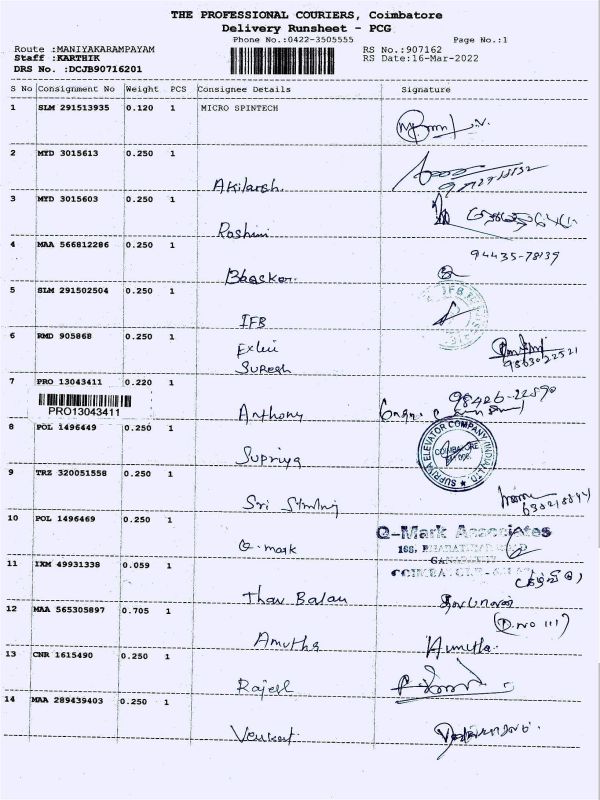 THE PROFESSIONAL COURIERS, Coimbatore
Delivery Runsheet - PCG
Phone No.:0422-3505555 Page No.:1
Route :MANIYAKARAMPAYAM RS No.:907162
Staff :KARTHIK RS Date:16-Mar-2022
DRS No. :DCJB90716201
S No Consignment No Weight PCS Consignee Details Signature
1 SLM 291513935 0.120 1 MICRO SPINTECH
2 MYD 3015613 0.250 1
Akilarsh.
3 MYD 3015603 0.250 1
Roshini
4 MAA 566812286 0.250 1 94435-78139
Bhaskar.
5 SLM 291502504 0.250 1
IFB
6 RMD 905868 0.250 1
Suresh 9863022521
7 PRO 13043411 0.220 1
PRO13043411
Anthony 98426-22590
8 POL 1496449 0.250 1
SUPRIYA ELEVATOR COMPANY (INDIA) LTD
COIMBATORE
Supriya
9 TRZ 320051558 0.250 1
Sri
10 POL 1496469 0.250 1
Q-Mark Associates
Q-mark
11 IXM 49931338 0.059 1
Thav Balan
12 MAA 565305897 0.705 1 (D.no 111)
Amutha Amutha.
13 CNR 1615490 0.250 1
Rajesh
14 MAA 289439403 0.250 1
Venkat.